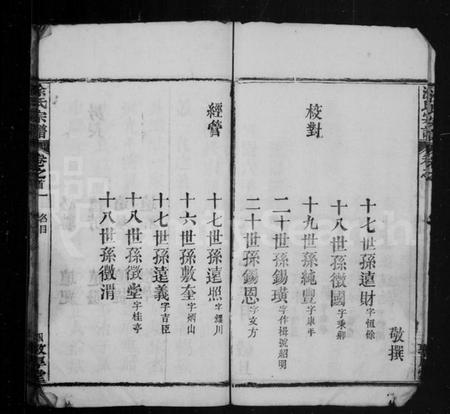 敬撰
十七世孫遠財字恆餘
十八世孫徵國字秉卿
校對
十九世孫純豐字康平
二十世孫錫璜字作楫號紹明
二十世孫錫恩字文方
經管
十七世孫遠照字鏡川
十六世孫敷奎字炳山
十七世孫遠義字吉臣
十八世孫徵堂字桂亭
十八世孫徵渭
涂氏宗譜
卷之首
名目
敦厚堂